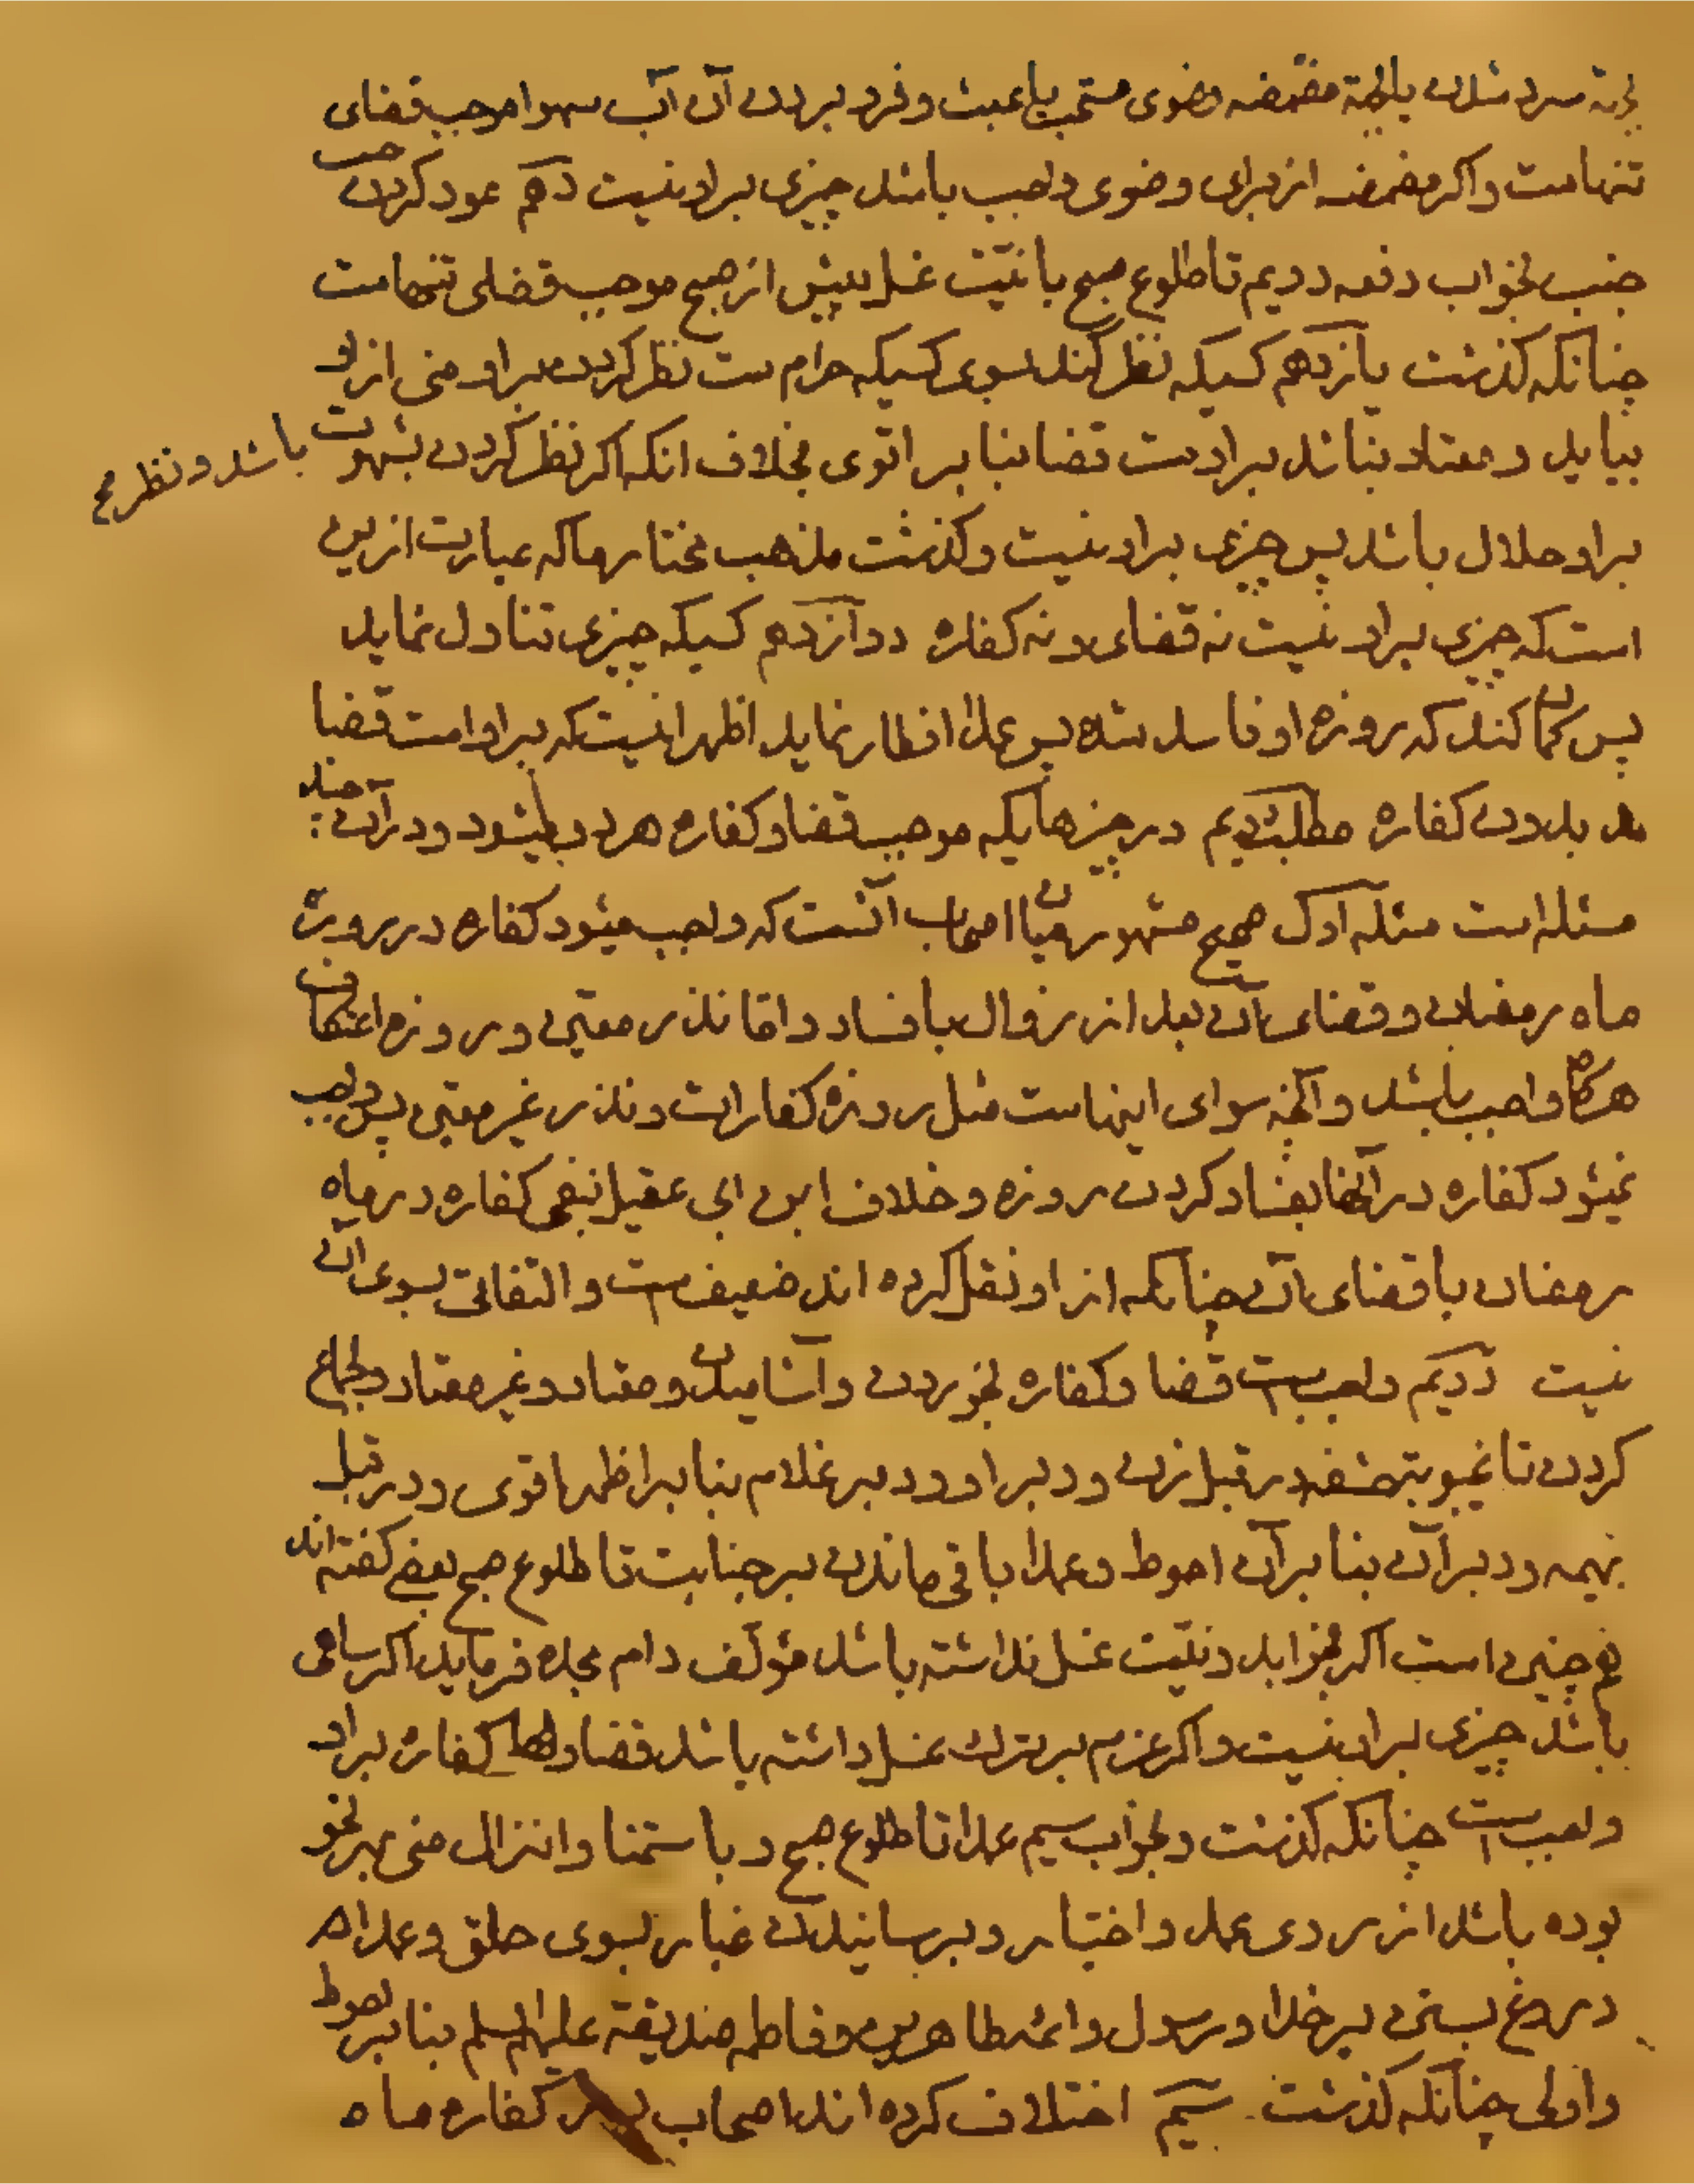 بجهة سرد شدن یا بجهة مضمضه وضوی مستحب یا عبث و فرو بردن آن آب سهوا موجب قضای
تنهاست و اکر مضمضه از برای وضوی واجب باشد چیزی بر او نیست دهم عود کردن جنب
جنب بخواب دفعه دویم تا طلوع صبح با نیّت غسل پیش از صبح موجب قضای تنهاست
چنانکه کذشت یازدهم کسیکه نظر کند بسوی کسیکه حرام ست نظر کردن بر او و منی از او
بیاید و معتاد نباشد بر اوست قضا بنا بر اقوی بخلاف انکه اکر نظر کردن بشهوت باشد و نظر
بر او حلال باشد پس چیزی بر او نیست و کذشت مذهب مختار ما که عبارت از این
است که چیزی بر او نیست نه قضای و نه کفاره دوآزدهم کسیکه چیزی تناول نماید
پس کمان کند که روزه او فاسد شده پس عمدا افطار نماید اظهر اینست که بر او است قضا
بدون کفاره مطلب دویم در چیزهائیکه موجب قضا و کفاره هر دو میشود و در آن چند
مسئله است مسئله اوّل صحیح مشهور میان اصحاب آنست که واجب میشود کفاره در روزه
ماه رمضان و قضای آن بعد از زوال با فساد و امّا نذر معیّن و روزه اعتکاف
هرکاه واجب باشد و آنچه سوای اینهاست مثل روزه کفارات و نذر غیر معیّن پس واجب
نمیشود کفاره در آنها بفساد کردن روزه و خلاف ابن ابی عقیل بنفی کفاره در ماه
رمضان یا قضای آن چنانکه از او نقل کرده اند ضعیف ست و التفاتی بسوی آن
نیست دویم واجب ست قضا و کفاره بخوردن و آشامیدن و معتاد و غیر معتاد و بجماع
کردن تا غیبوبت حشفه در قبل زن و دبر او و دبر غلام بنا بر اظهر اقوی و در قبل
بهیمه و دبر آن بنا بر آن احوط و عمدا باقی ماندن بر جنابت تا طلوع صبح بعضی کفته اند
هم چنین است اکر بخوابد و نیّت غسل نداشته باشد مؤلّف دام مجده فرماید اکر ساهی
باشد چیزی بر او نیست و اکر عزم بر ترک غسل داشته باشد قضا و کفاره بر او
واجب ست چنانکه کذشت و بخواب سیم عمدا تا طلوع صبح و باستمنا و انزال منی بهر نحو
بوده باشد از روی عمد و اختیار و برسانیدن غبار بسوی حلق و عمدا
دروغ بستن بر خدا و رسول و ائمه طاهرین و فاطمه صدیقة علیهم السلم بنا بر احوط
و اولی چنانکه کذشت سیم اختلاف کرده اند اصحاب در کفاره ماه